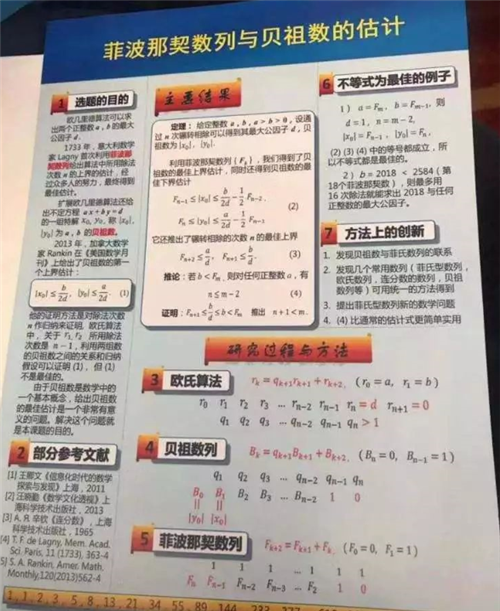 菲波那契数列与贝祖数的估计
1 选题的目的
欧几里德算法可以求
出两个正整数 a, b 的最大
公因子 d 。
1733 年，意大利数学
家 Lagny 首次利用菲波那
契数列给出算法中所用除法
次数 n 的上界的估计，经
过众多人的努力，最终得到
最佳估计。
扩展欧几里德算法还给
出不定方程 ax+by=d
的一组特解 x₀, y₀，称 |x₀|,
|y₀| 为 a，b 的贝祖数。
2013 年，加拿大数学
家 Rankin 在《美国数学月
刊》上给出了贝祖数的第一
个上界估计：
|x₀| ≤ b/2d, |y₀| ≤ a/2d (1)
他的证明方法是对除法次数
n 作归纳来证明。欧氏算法
中，关于 r₁, r₂ 所用除法
次数是 n − 1，利用两组数
的贝祖数之间的关系和归纳
假设可以证明 (1)，但 (1)
不是最佳的。
由于贝祖数是数学中的
一个基本概念，给出贝祖数
的最佳估计是一个非常有意
义的问题。解决这个问题就
是本课题的目的。
2 部分参考文献
[1] 王郦文《信息化时代的数学
探索与发现》上海，2011
[2] 汪晓勤《数学文化透视》上
海科学技术出版社，2013
[3] A. Я. 辛钦《连分数》，上海
科学技术出版社，1965
[4] T. F. de Lagny, Mem. Acad.
Sci. Paris, 11 (1733), 363-4
5] S. A. Rankin, Amer. Math.
Monthly,120(2013)562-4
主要结果
定理：给定整数 a, b，a > b > 0，设通
过 n 次辗转相除可以得到其最大公因子 d，贝
祖数为 |x₀|，|y₀|。
利用菲波那契数列 { Fₙ }，我们得到了贝
祖数的最佳上界估计，同时还得到贝祖数的最
佳下界估计
Fₙ₋₁ ≤ |x₀| ≤ b/2d − 1/2 Fₙ₋₂,
(2)
Fₙ ≤ |y₀| ≤ a/2d − 1/2 Fₙ₋₁.
它还推出了辗转相除的次数 n 的最佳上界
Fₙ₊₂ ≤ a/d, Fₙ₊₁ ≤ b/d. (3)
推论：若 b < Fₘ，则对任何正整数 a，有
n ≤ m − 2 (4)
证明：Fₙ₊₁ ≤ b/d ≤ b < Fₘ 推出 n + 1 < m.
6 不等式为最佳的例子
1） a = Fₘ，b = Fₘ₋₁，则
d = 1，n = m − 2,
|x₀| = Fₙ₋₁，|y₀| = Fₙ.
(2) (3) (4) 中的等号都成立，所
以不等式都是最佳的。
2）b = 2018 < 2584（第
18个菲波那契数），则最多用
16 次除法就能求出 2018 与任何
正整数的最大公因子。
7 方法上的创新
1. 发现贝祖数与菲氏数列的联系
2. 发现几个常用数列（菲氏型数列，
欧氏数列，连分数的数列，贝祖
数列等）可用统一的方法得到
3. 提出菲氏型数列新的数学问题
4. (4) 比通常的估计式更简单实用
研究过程与方法
3 欧氏算法 rₖ = qₖ₊₁rₖ₊₁ + rₖ₊₂, (r₀ = a, r₁ = b)
r₀ r₁ r₂ r₃ ... rₙ₋₂ rₙ₋₁ rₙ = d rₙ₊₁ = 0
q₁ q₂ q₃ ... qₙ₋₂ qₙ₋₁ qₙ > 1
4 贝祖数列 Bₖ = qₖ₊₁Bₖ₊₁ + Bₖ₊₂, (Bₙ = 0, Bₙ₋₁ = 1)
q₁ q₂ q₃ ... qₙ₋₂ qₙ₋₁ qₙ
B₀ B₁ B₂ B₃ ... Bₙ₋₂ 1 0
|| ||
|y₀| |x₀|
5 菲波那契数列 Fₖ₊₂ = Fₖ₊₁ + Fₖ, (F₀ = 0, F₁ = 1)
1 1 1 ... 1 1 1
Fₙ Fₙ₋₁ Fₙ₋₂ Fₙ₋₃ ... F₂ 1 0
1, 1, 2, 3, 5, 8, 13, 21, 34, 55, 89, 144, 233, 377